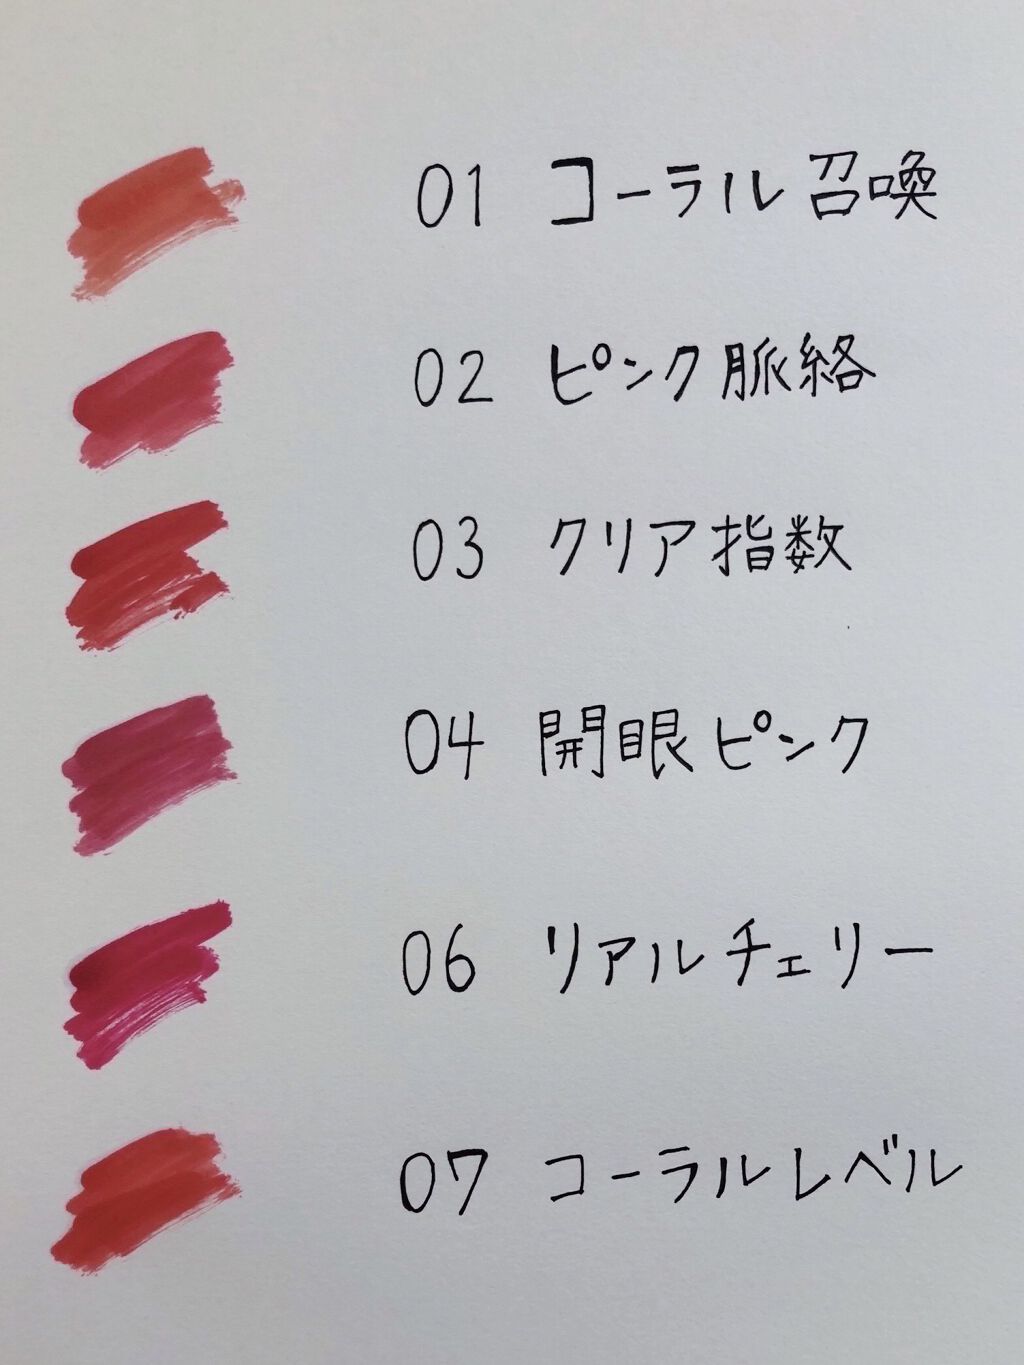 01 コーラル召喚
02 ピンク脈絡
03 クリア指数
04 開眼ピンク
06 リアルチェリー
07 コーラルレベル